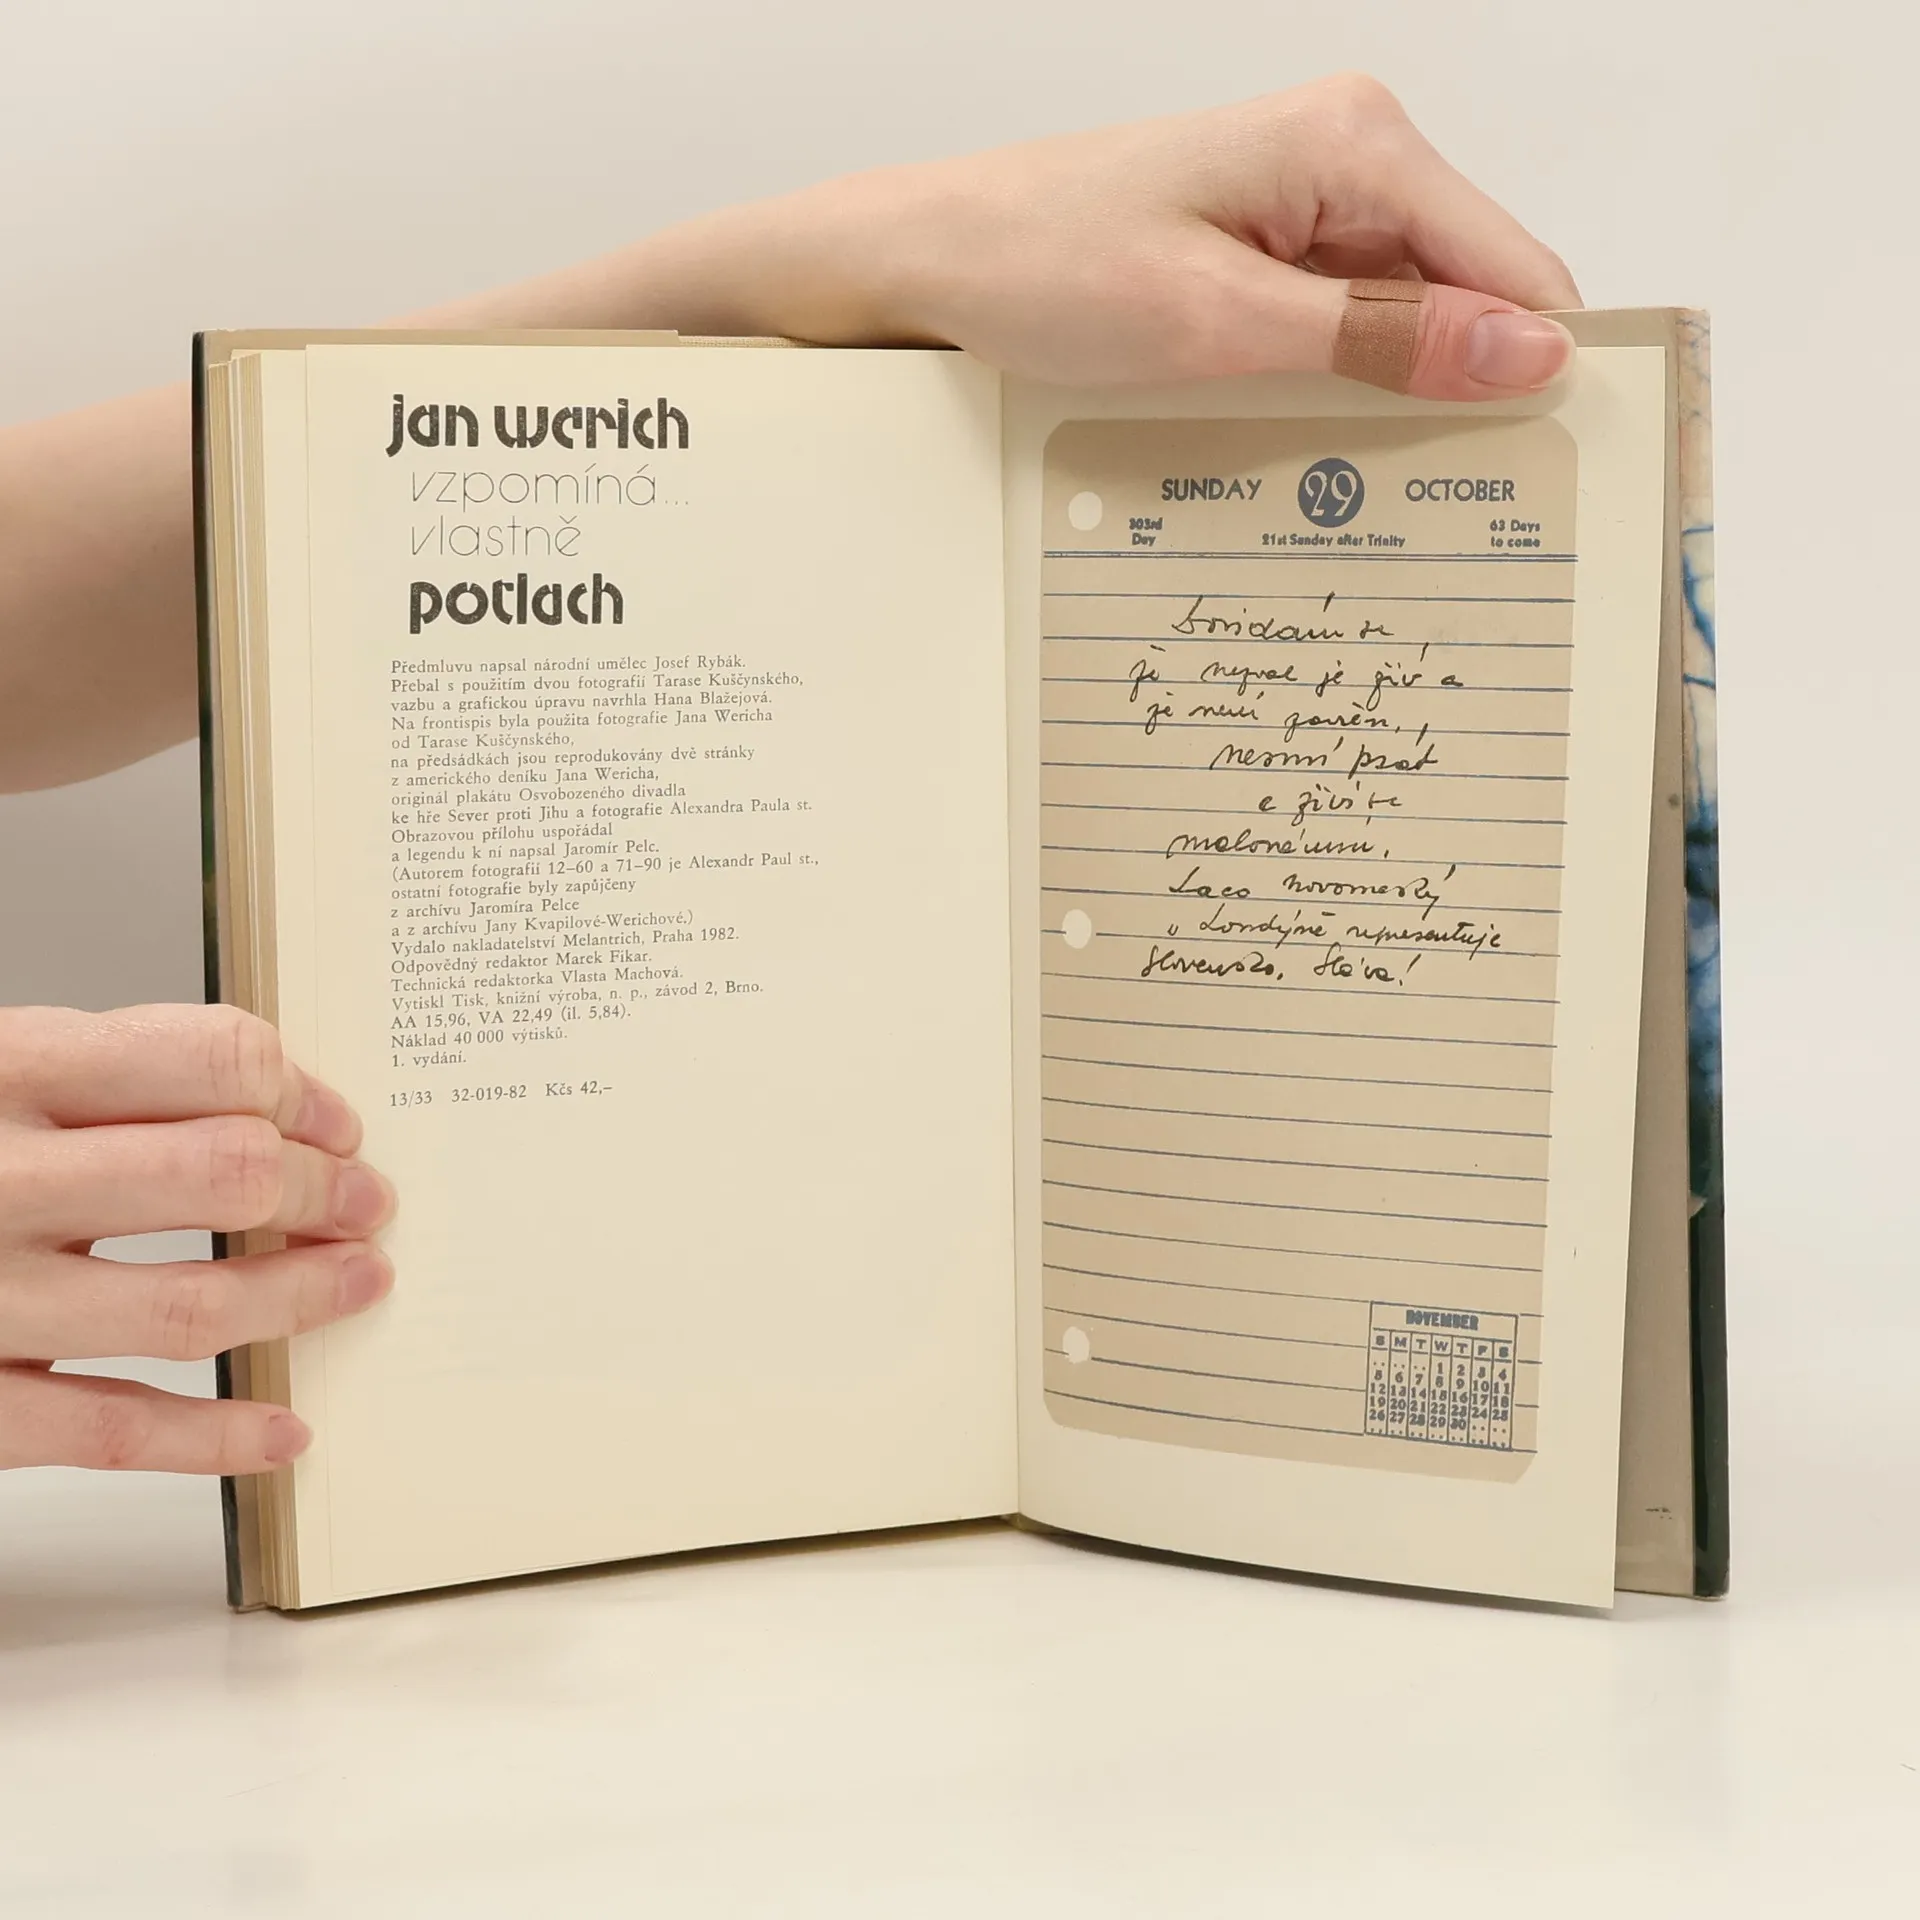 jan werich
vzpomíná...
vlastně
potlach
Předmluvu napsal národní umělec Josef Rybák.
Přebal s použitím dvou fotografií Tarase Kuščynského,
vazbu a grafickou úpravu navrhla Hana Blažejová.
Na frontispis byla použita fotografie Jana Wericha
od Tarase Kuščynského,
na předsádkách jsou reprodukovány dvě stránky
z amerického deníku Jana Wericha,
originál plakátu Osvobozeného divadla
ke hře Sever proti Jihu a fotografie Alexandra Paula st.
Obrazovou přílohu uspořádal
a legendu k ní napsal Jaromír Pelc.
(Autorem fotografií 12–60 a 71–90 je Alexandr Paul st.,
ostatní fotografie byly zapůjčeny
z archívu Jaromíra Pelce
a z archívu Jany Kvapilové-Werichové.)
Vydalo nakladatelství Melantrich, Praha 1982.
Odpovědný redaktor Marek Fikar.
Technická redaktorka Vlasta Machová.
Vytiskl Tisk, knižní výroba, n. p., závod 2, Brno.
AA 15,96, VA 22,49 (il. 5,84).
Náklad 40 000 výtisků.
1. vydání.
13/33 32-019-82 Kčs 42,–
SUNDAY 29 OCTOBER
303rd Day 21st Sunday after Trinity 63 Days to come
Dovídám se,
že nezval je živ a
že není zavřen,
nesmí psát
a živí se
Laco Novomeský
v Londýně representuje
Slovensko. Sláva!
NOVEMBER
S M T W T F S
.. .. .. 1 2 3 4
5 6 7 8 9 10 11
12 13 14 15 16 17 18
19 20 21 22 23 24 25
26 27 28 29 30 .. ..
.. .. .. .. .. .. ..